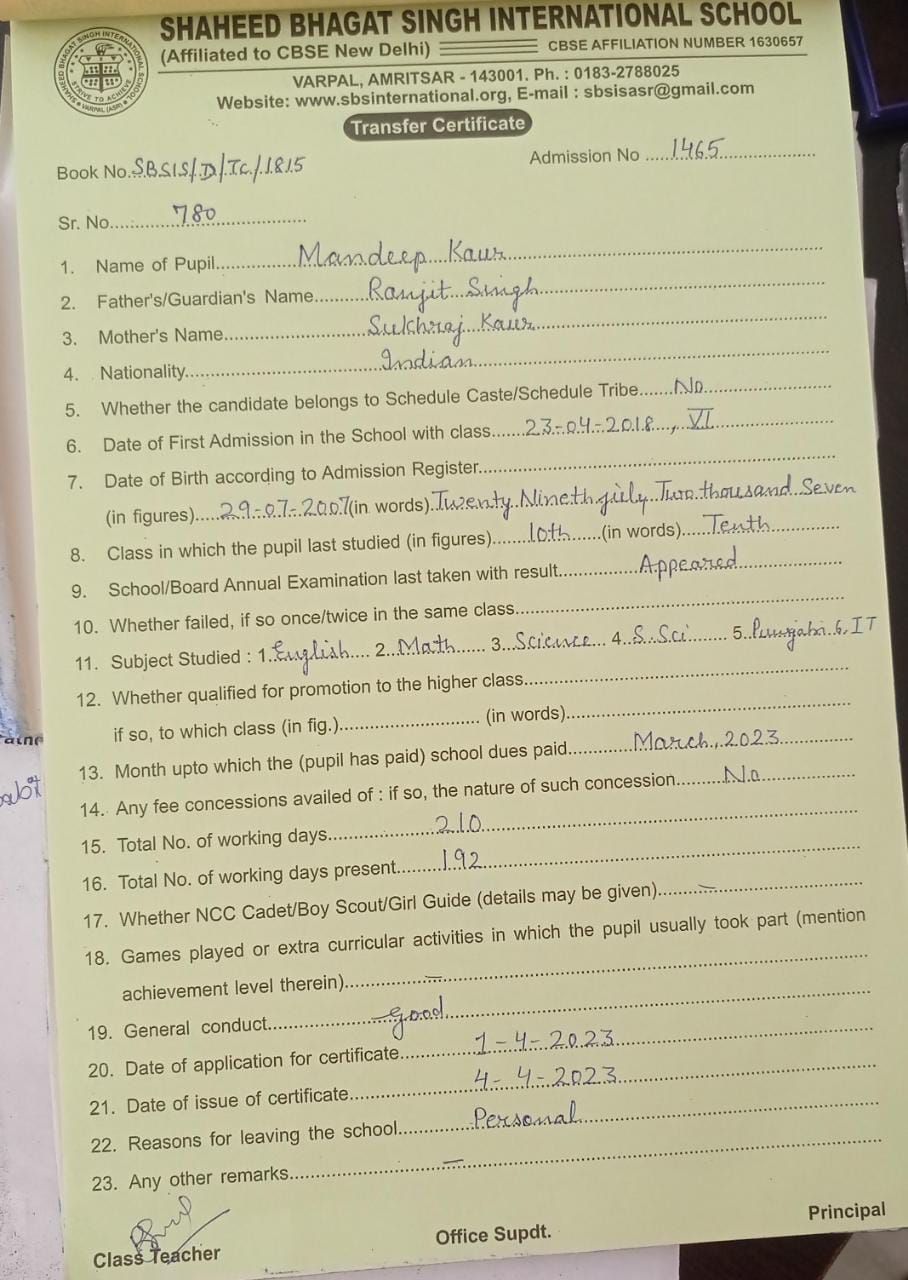 SHAHEED BHAGAT SINGH INTERNATIONAL SCHOOL
(Affiliated to CBSE New Delhi) CBSE AFFILIATION NUMBER 1630657
VARPAL, AMRITSAR - 143001. Ph. : 0183-2788025
Website: www.sbsinternational.org, E-mail : sbsisasr@gmail.com
Transfer Certificate
Book No. SBSIS/D/TC/1815 Admission No ..... 1465
Sr. No..... 780
1. Name of Pupil..... Mandeep Kaur
2. Father's/Guardian's Name..... Ranjit Singh
3. Mother's Name..... Sukhraj Kaur
4. Nationality..... Indian
5. Whether the candidate belongs to Schedule Caste/Schedule Tribe..... No
6. Date of First Admission in the School with class..... 23-04-2018, VI
7. Date of Birth according to Admission Register.....
(in figures)..... 29-07-2007 (in words). Twenty Nineth july Two thousand Seven
8. Class in which the pupil last studied (in figures)..... 10th ..... (in words)..... Tenth
9. School/Board Annual Examination last taken with result..... Appeared
10. Whether failed, if so once/twice in the same class.....
11. Subject Studied : 1. English 2. Math 3. Science 4. S.Sci 5. Punjabi 6. IT
12. Whether qualified for promotion to the higher class.....
if so, to which class (in fig.)..... (in words).....
13. Month upto which the (pupil has paid) school dues paid..... March, 2023
14. Any fee concessions availed of : if so, the nature of such concession..... No
15. Total No. of working days..... 210
16. Total No. of working days present..... 192
17. Whether NCC Cadet/Boy Scout/Girl Guide (details may be given)..... —
18. Games played or extra curricular activities in which the pupil usually took part (mention
achievement level therein)..... —
19. General conduct..... good
20. Date of application for certificate..... 1-4-2023
21. Date of issue of certificate..... 4-4-2023
22. Reasons for leaving the school..... Personal
23. Any other remarks..... —
Class Teacher Office Supdt. Principal